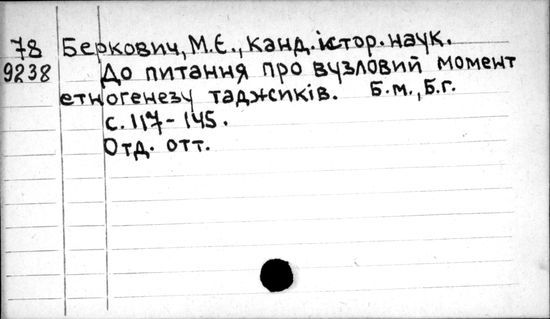 78 Беркович, М.Є., канд. істор. наук.
9238 До питання про вузловий момент
етногенезу таджиків. Б.м., Б.г.
с. 117-145.
Отд. отт.